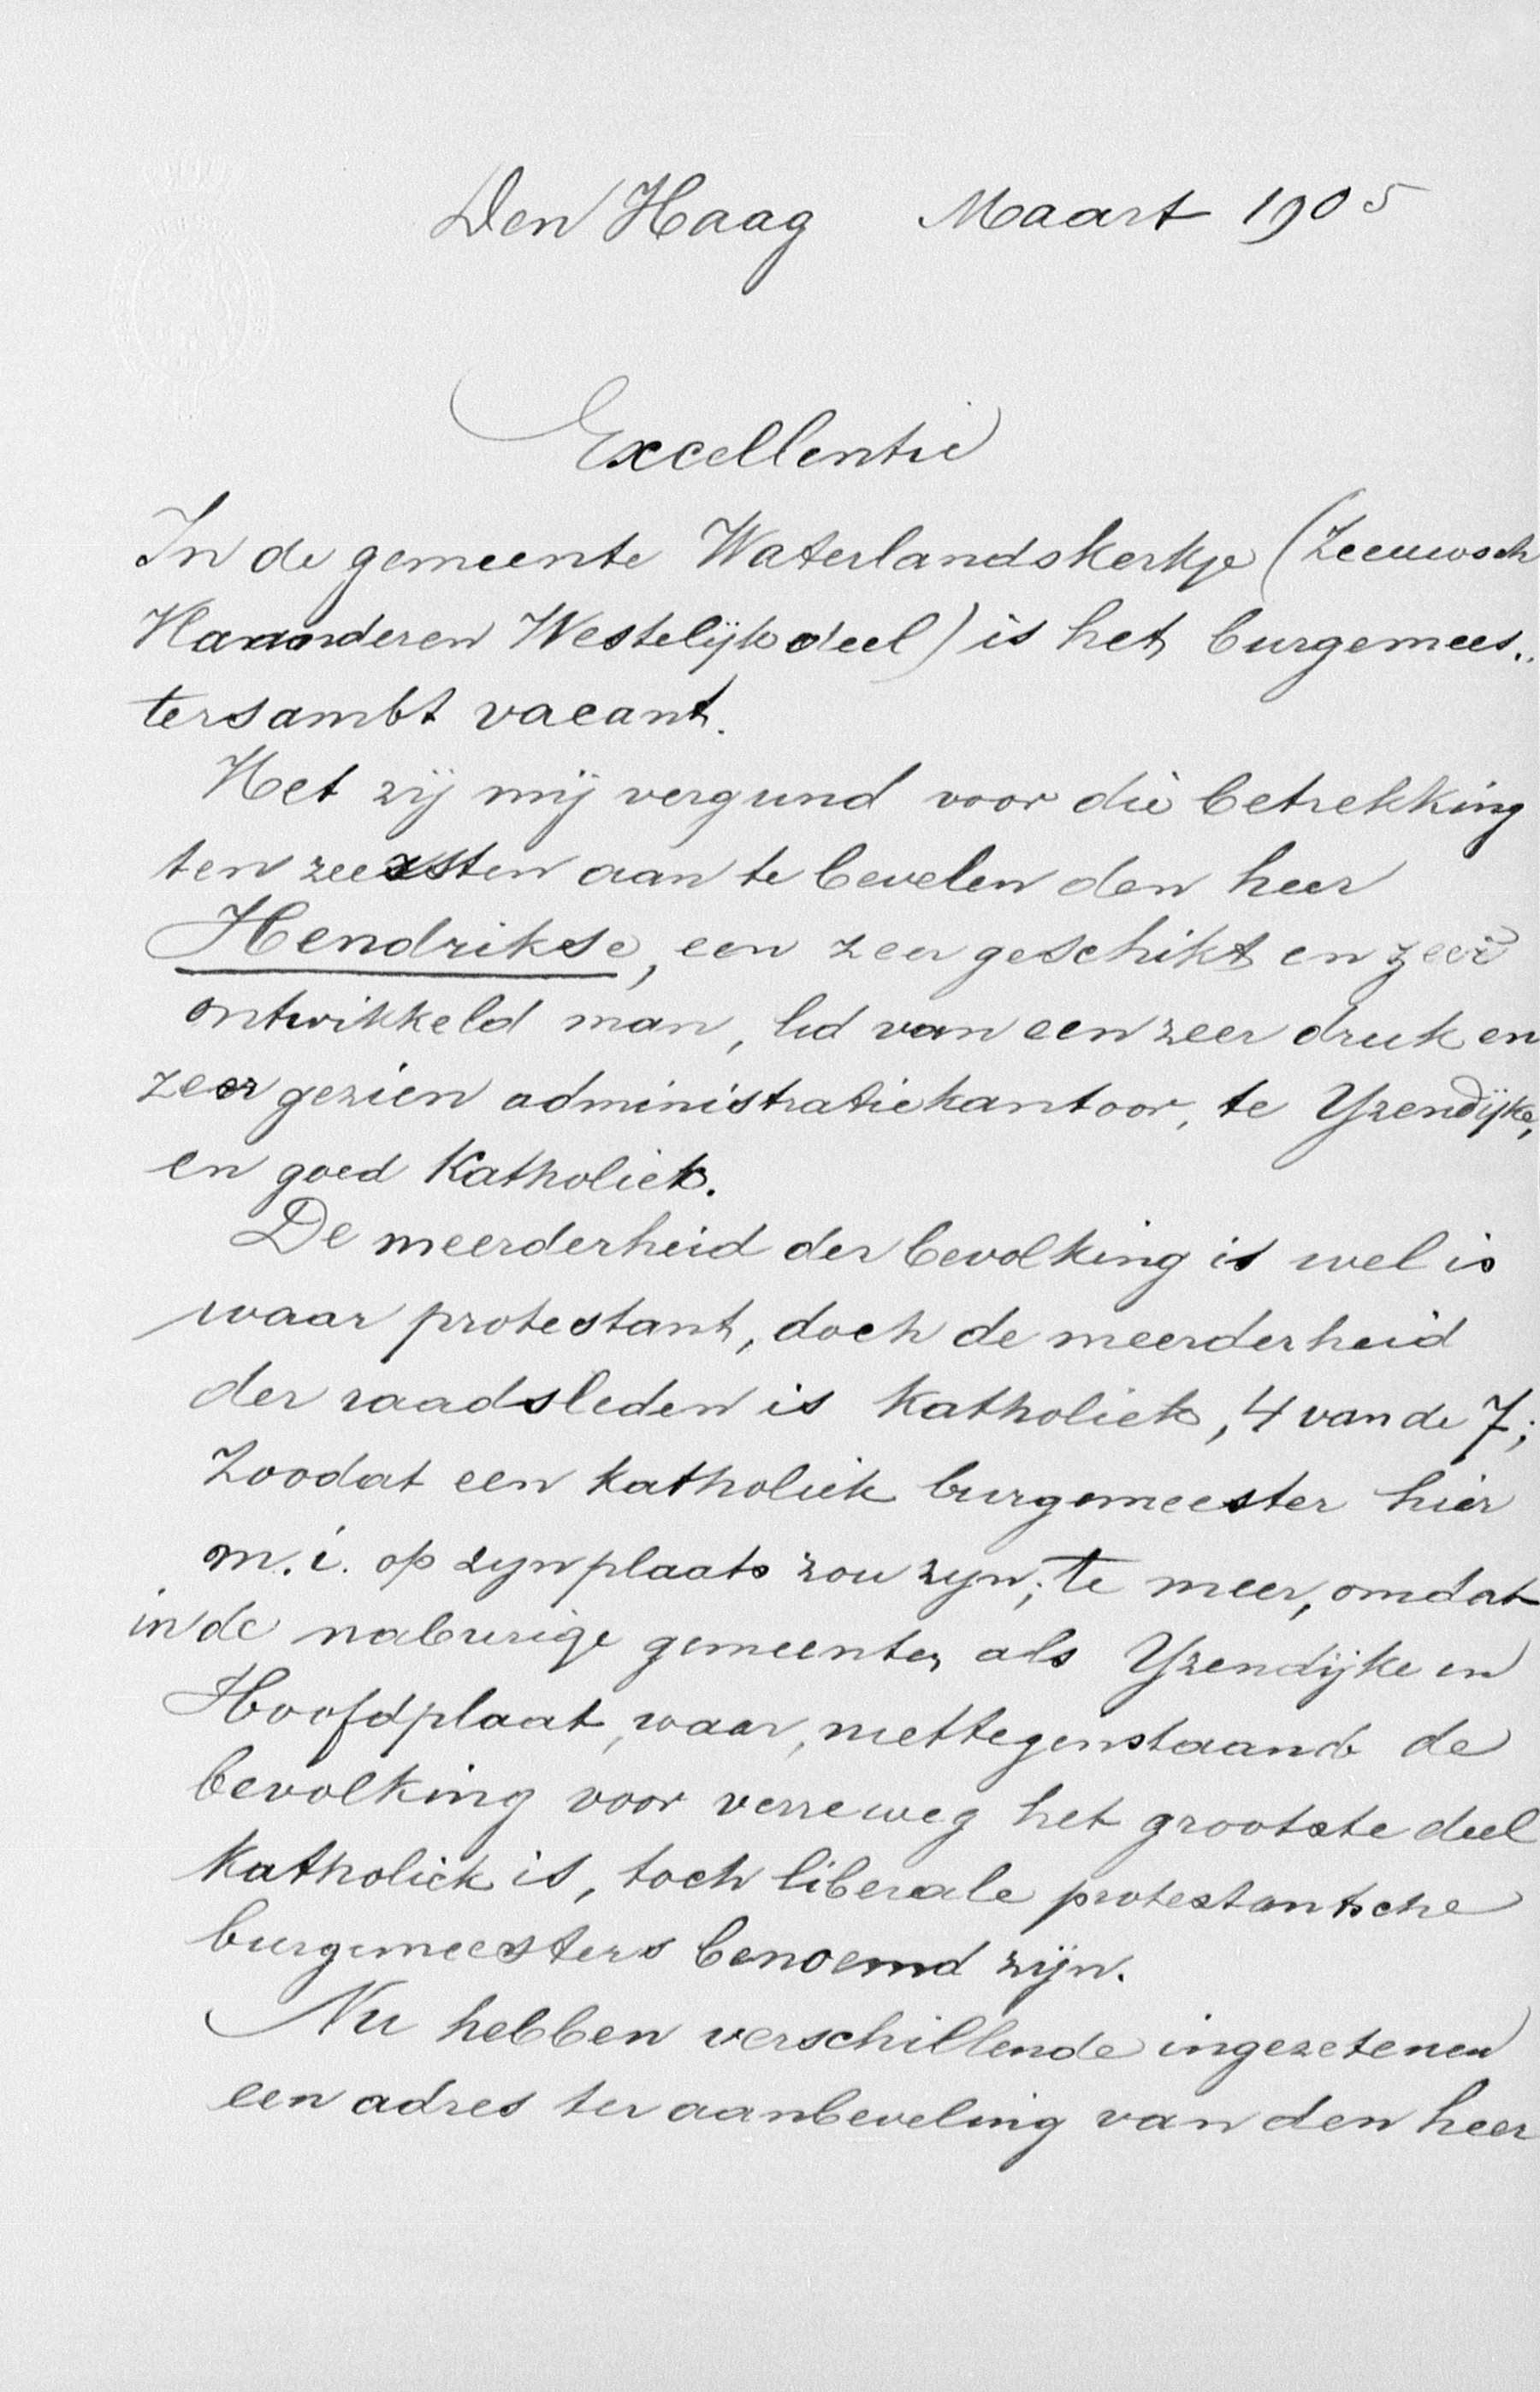 Den Haag Maart 1905
Excellentie
In de gemeente Waterlandskerkje (Zeeuwsch
Vlaanderen Westelijk deel) is het burgemees„
tersambt vacant.
Het zij mij vergund voor die betrekking
ten zeersten aan te bevelen den heer
Hendrikse, een zeer geschikt en zeer
ontwikkeld man, lid van een zeer druk en
zeer gezien administratiekantoor, te Yzendijke,
en goed Katholiek.
De meerderheid der bevolking is wel is
waar protestant, doch de meerderheid
der raadsleden is Katholiek, 4 van de 7;
Zoodat een katholiek burgemeester hier
m. i. op zijn plaats zou zijn; te meer, omdat
in de naburige gemeenten als Yzendijke en
Hoofdplaat, waar, niettegenstaande de
bevolking voor verreweg het grootste deel
Katholiek is, toch liberale protestantsche
burgemeesters benoemd zijn.
Nu hebben verschillende ingezetenen
een adres ter aanbeveling van den heer